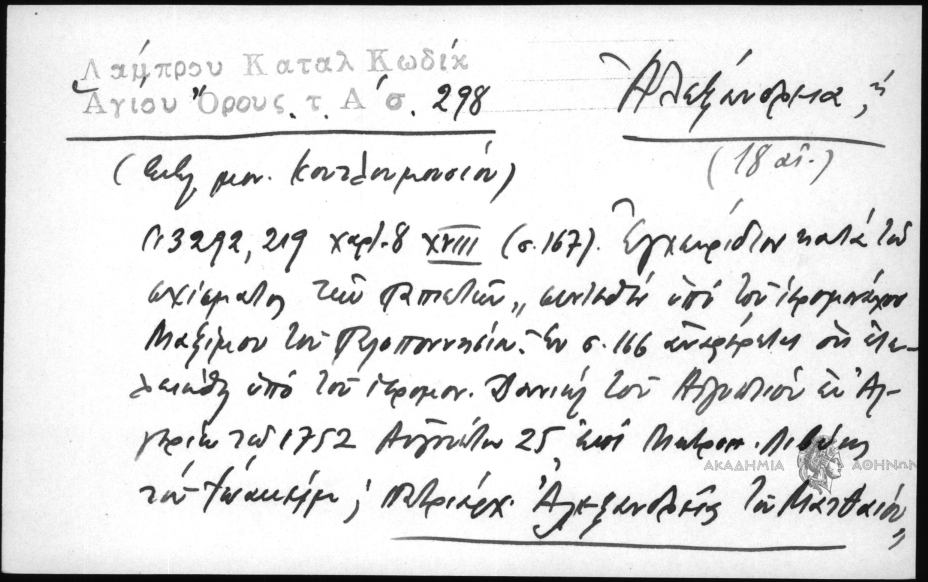 Λάμπρου Καταλ Κωδίκ
Ἁγίου Ὄρους τ. Α΄ σ. 298
Ἀλεξάνδρεια, ἡ
(18 αἰ.)
(Βιβλ. μον. Κουτλουμουσίου)
3292, 219 χαρτ. 8 XVIII (σ. 167). Ἐγχειρίδιον κατὰ τοῦ
σχίσματος τῶν Παπιστῶν, συντεθὲν ὑπὸ τοῦ ἱερομονάχου
Μαξίμου τοῦ Πελοποννησίου. Ἐν σ. 166 ἀναφέρεται ὅτι ἐτε-
λειώθη ὑπὸ τοῦ ἱερομον. τοῦ Αἰγυπτίου ἐν Ἀλ-
γερίῳ τῷ 1752 Αὐγούστου 25, ἐπὶ Μητροπ. Λιβύης
τοῦ καὶ πατριάρχ. Ἀλεξανδρείας τοῦ Ματθαίου
ΑΚΑΔΗΜΙΑ ΑΘΗΝΩΝ